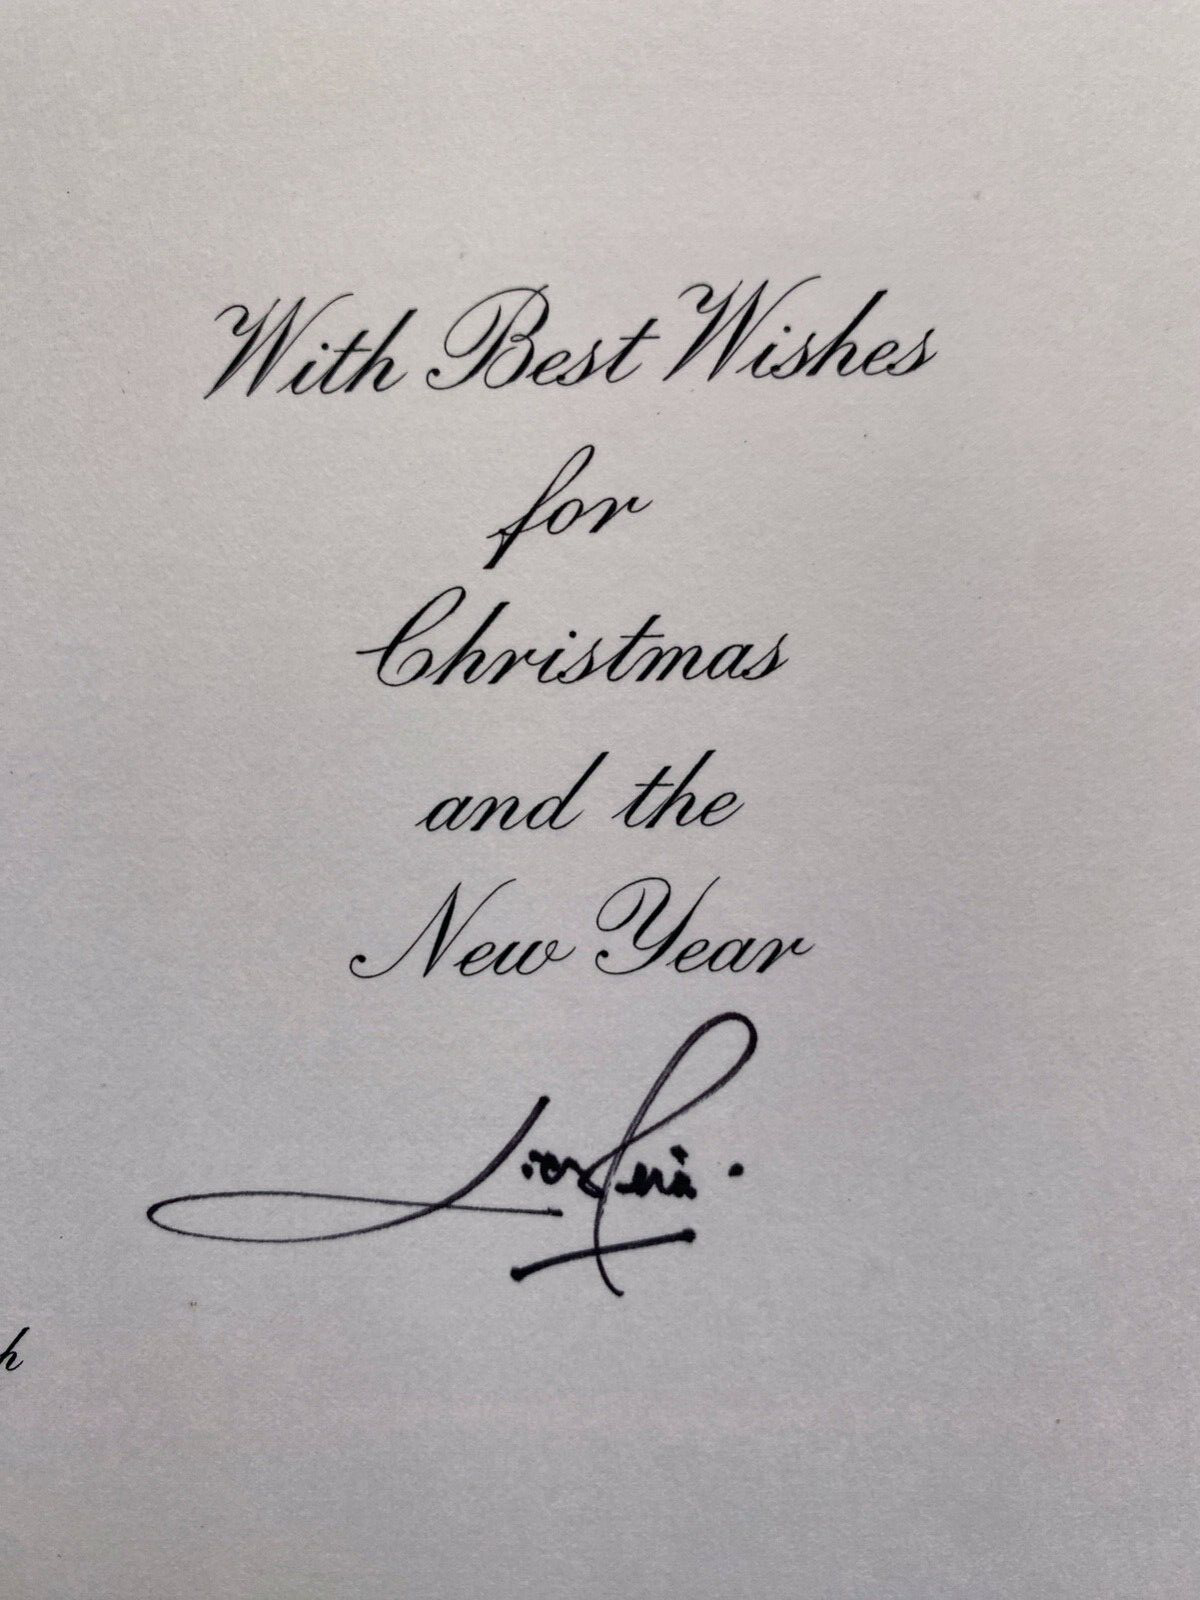 With Best Wishes
for
Christmas
and the
New Year
h